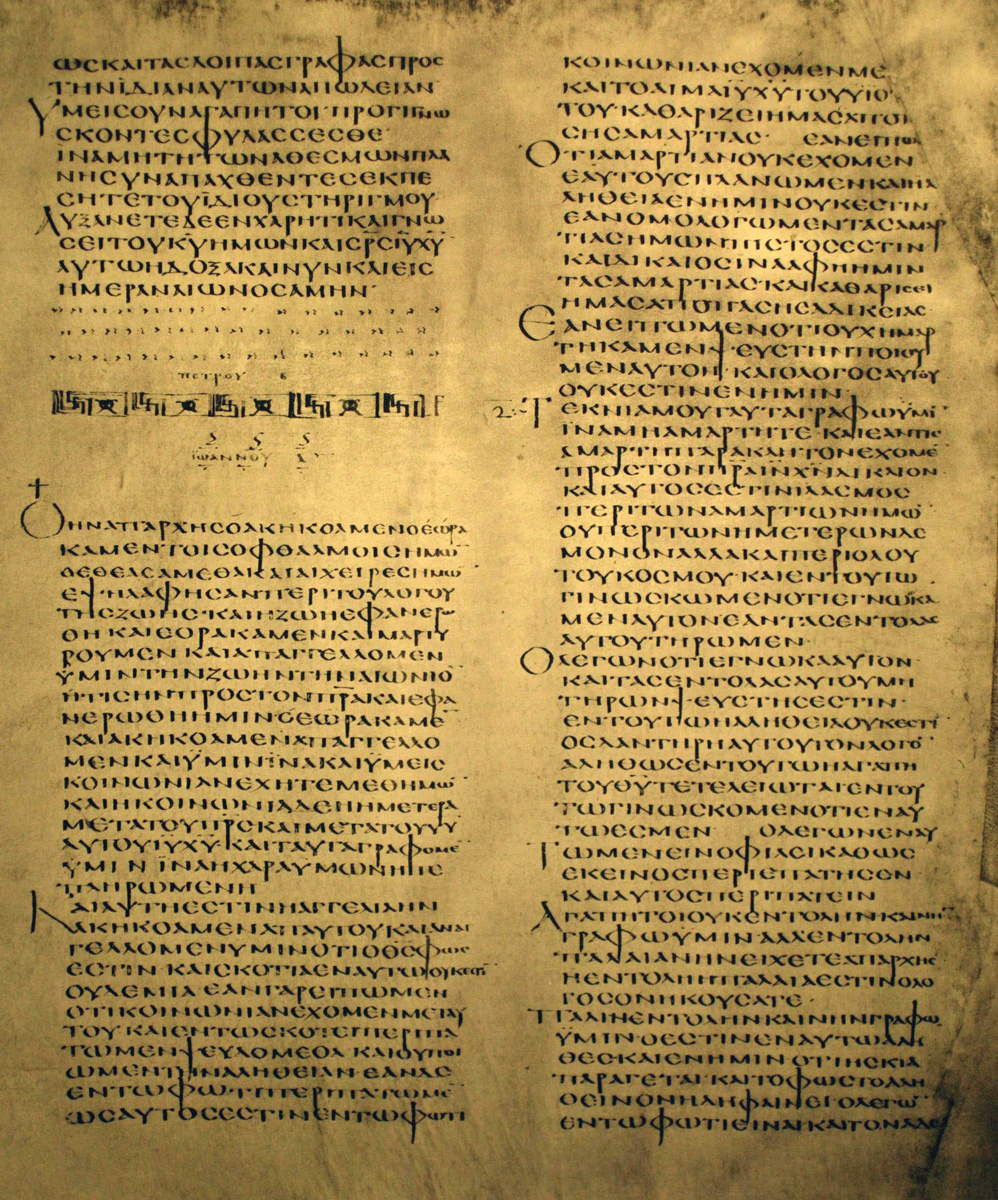 ωςκαιταςλοιπαςγραφαςπρος
τηνϊδιαναυτωναπωλειαν
Υμειςουναγαπητοιπρογινω
σκοντεςφυλαςςεςθε
ιναμητητωναθεςμωνπλα
νηςυναπαχθεντεςεκπε
ςητετουϊδιουςτηριγμου
Αυξανετεδεενχαριτικαιγνω
ςειτουκ̅υ̅ημωνκαις̅ρ̅ς̅ι̅υ̅χ̅υ̅
αυτωηδοξακαινυνκαιεις
ημεραναιωνοςαμην·
πετρου β
ιωαννου α
Οηναπαρχηςοακηκοαμενοεωρα
καμεντοιςοφθαλμοιςημω̅
οεθεαςαμεθακαιαιχειρεςημω̅
εψηλαφηςανπεριτουλογου
τηςζωης·καιηζωηεφανερω
θηκαιεορακαμενκαιμαρτυ
ρουμενκαιαπαγγελλομεν
ϋμιντηνζωηντηναιωνιο̅
ητιςηνπροςτονπ̅ρ̅ακαιεφα
νερωθηημινοεωρακαμε̅
καιακηκοαμεναπαγγελλο
μενκαιϋμινϊνακαιϋμεις
κοινωνιανεχητεμεθημω̅
καιηκοινωνιαδεηημετερα
μετατουπ̅ρ̅ςκαιμετατουυ̅υ̅
αυτουι̅υ̅χ̅υ̅·καιταυταγραφομε̅
ϋμινιναηχαραυμωνηπε
πληρωμενη
Καιαυτηεςτινηαγγελιαην
ακηκοαμεναπαυτουκαιαναγ
γελλομενυμινοτιοθ̅ς̅φως
εςτινκαιςκοτιαεναυτωουκεςτι̅
ουδεμιαεανγαρεπωμεν
οτικοινωνιανεχομενμεταυ
τουκαιεντωςκοτειπεριπα
τωμενψευδομεθακαιουποι
ωμεντηναληθειανεανδε
εντωφωτιπεριπατωμε̅
ωςαυτοςεςτινεντωφωτι
κοινωνιανεχομενμε
καιτοαιμαι̅υ̅χ̅υ̅τουυιου
τουκαθαριζειημαςαπο
ςηςαμαρτιας· εανεπω
Οτιαμαρτιανουκεχομεν
εαυτουςπλανωμενκαιηα
ληθειαενημινουκεςτιν
εανομολογωμενταςαμαρ
τιαςημωνπιςτοςεςτιν
καιδικαιοςινααφηημιν
ταςαμαρτιαςκαικαθαριςει
ημαςαποπαςηςαδικειας
Εανειπωμενοτιουχημαρ
τηκαμενψευςτηνποιου
μεναυτον·καιολογοςαυτου
ουκεςτινενημιν
Τεκνιαμουταυταγραφωυμι̅
ιναμηαμαρτητε·καιεαντις
αμαρτηπαρακλητονεχομε̅
προςτονπ̅ρ̅αι̅ν̅χ̅ν̅δικαιον
καιαυτοςεςτινιλαςμος
περιτωναμαρτιωνημω̅
ουπεριτωνημετερωνδε
μονοναλλακαιπεριολου
τουκοςμουκαιεντουτω
γινωςκωμενοτιεγνωκα
μεναυτονεανταςεντολας
αυτουτηρωμεν·
Ολεγωνοτιεγνωκααυτον
καιταςεντολαςαυτουμη
τηρωνψευςτηςεςτιν·
εντουτωηαληθειαουκεςτι̅
οςδαντηρηαυτουτονλογο̅
αληθωςεντουτωηαγαπη
τουθ̅υ̅τετελειωταιεντου
τωγινωςκομενοτιεναυ
τωεςμεν ολεγωνεναυ
τωμενεινοφιλεικαθως
εκεινοςπεριεπατηςεν
καιαυτοςπεριπατειν
Αγαπητοιουκεντοληνκαινη̅
γραφωϋμιναλλεντολην
παλαιανηνειχετεαπαρχης
ηεντοληηπαλαιαεςτινολο
γοςονηκουςατε·
Παλινεντοληνκαινηνγραφω
ϋμινοεςτινεναυτωαλη
θεςκαιενημινοτιηςκια
παραγεταικαιτοφωςτοαλη
θεινονηδηφαινειολεγω̅
εντωφωτιειναικαιτοναδε